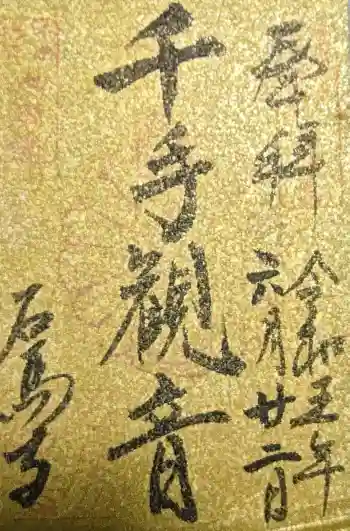 奉拝
令和五年
六月廿二日
千手觀音
石馬寺